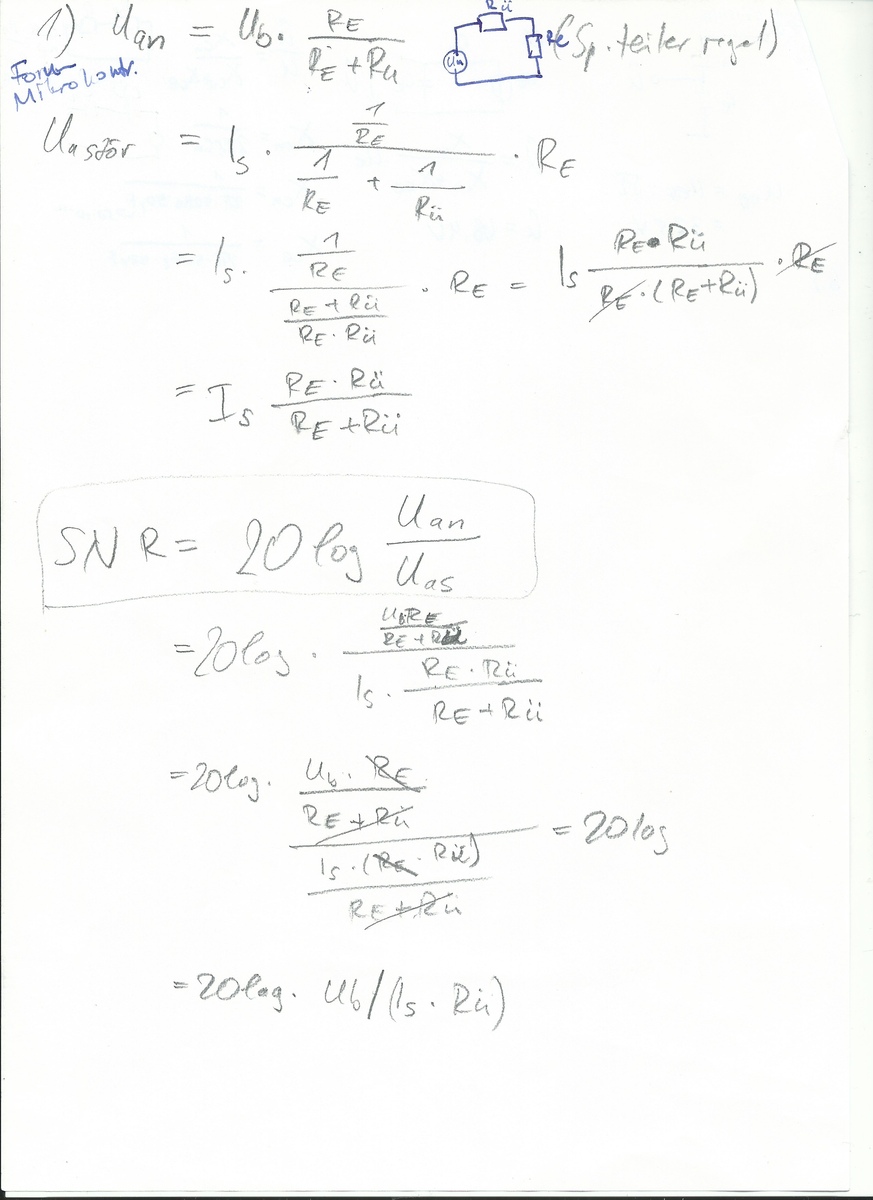 1) Uan = Ub · RE / (RE + Rü) (Sp. teiler regel)
Rü
RE
Forum
Mikrokontr.
Uastör = Is · (1/RE) / (1/RE + 1/Rü) · RE
= Is · (1/RE) / ((RE + Rü) / (RE · Rü)) · RE = Is (RE · Rü) / (RE · (RE + Rü)) · RE
= Is (RE · Rü) / (RE + Rü)
SNR = 20 log Uan / Uas
= 20 log · (Ub RE / (RE + Rü)) / (Is · (RE · Rü) / (RE + Rü))
= 20 log · (Ub · RE / (RE + Rü)) / (Is · (RE · Rü) / (RE + Rü)) = 20 log
= 20 log · Ub / (Is · Rü)